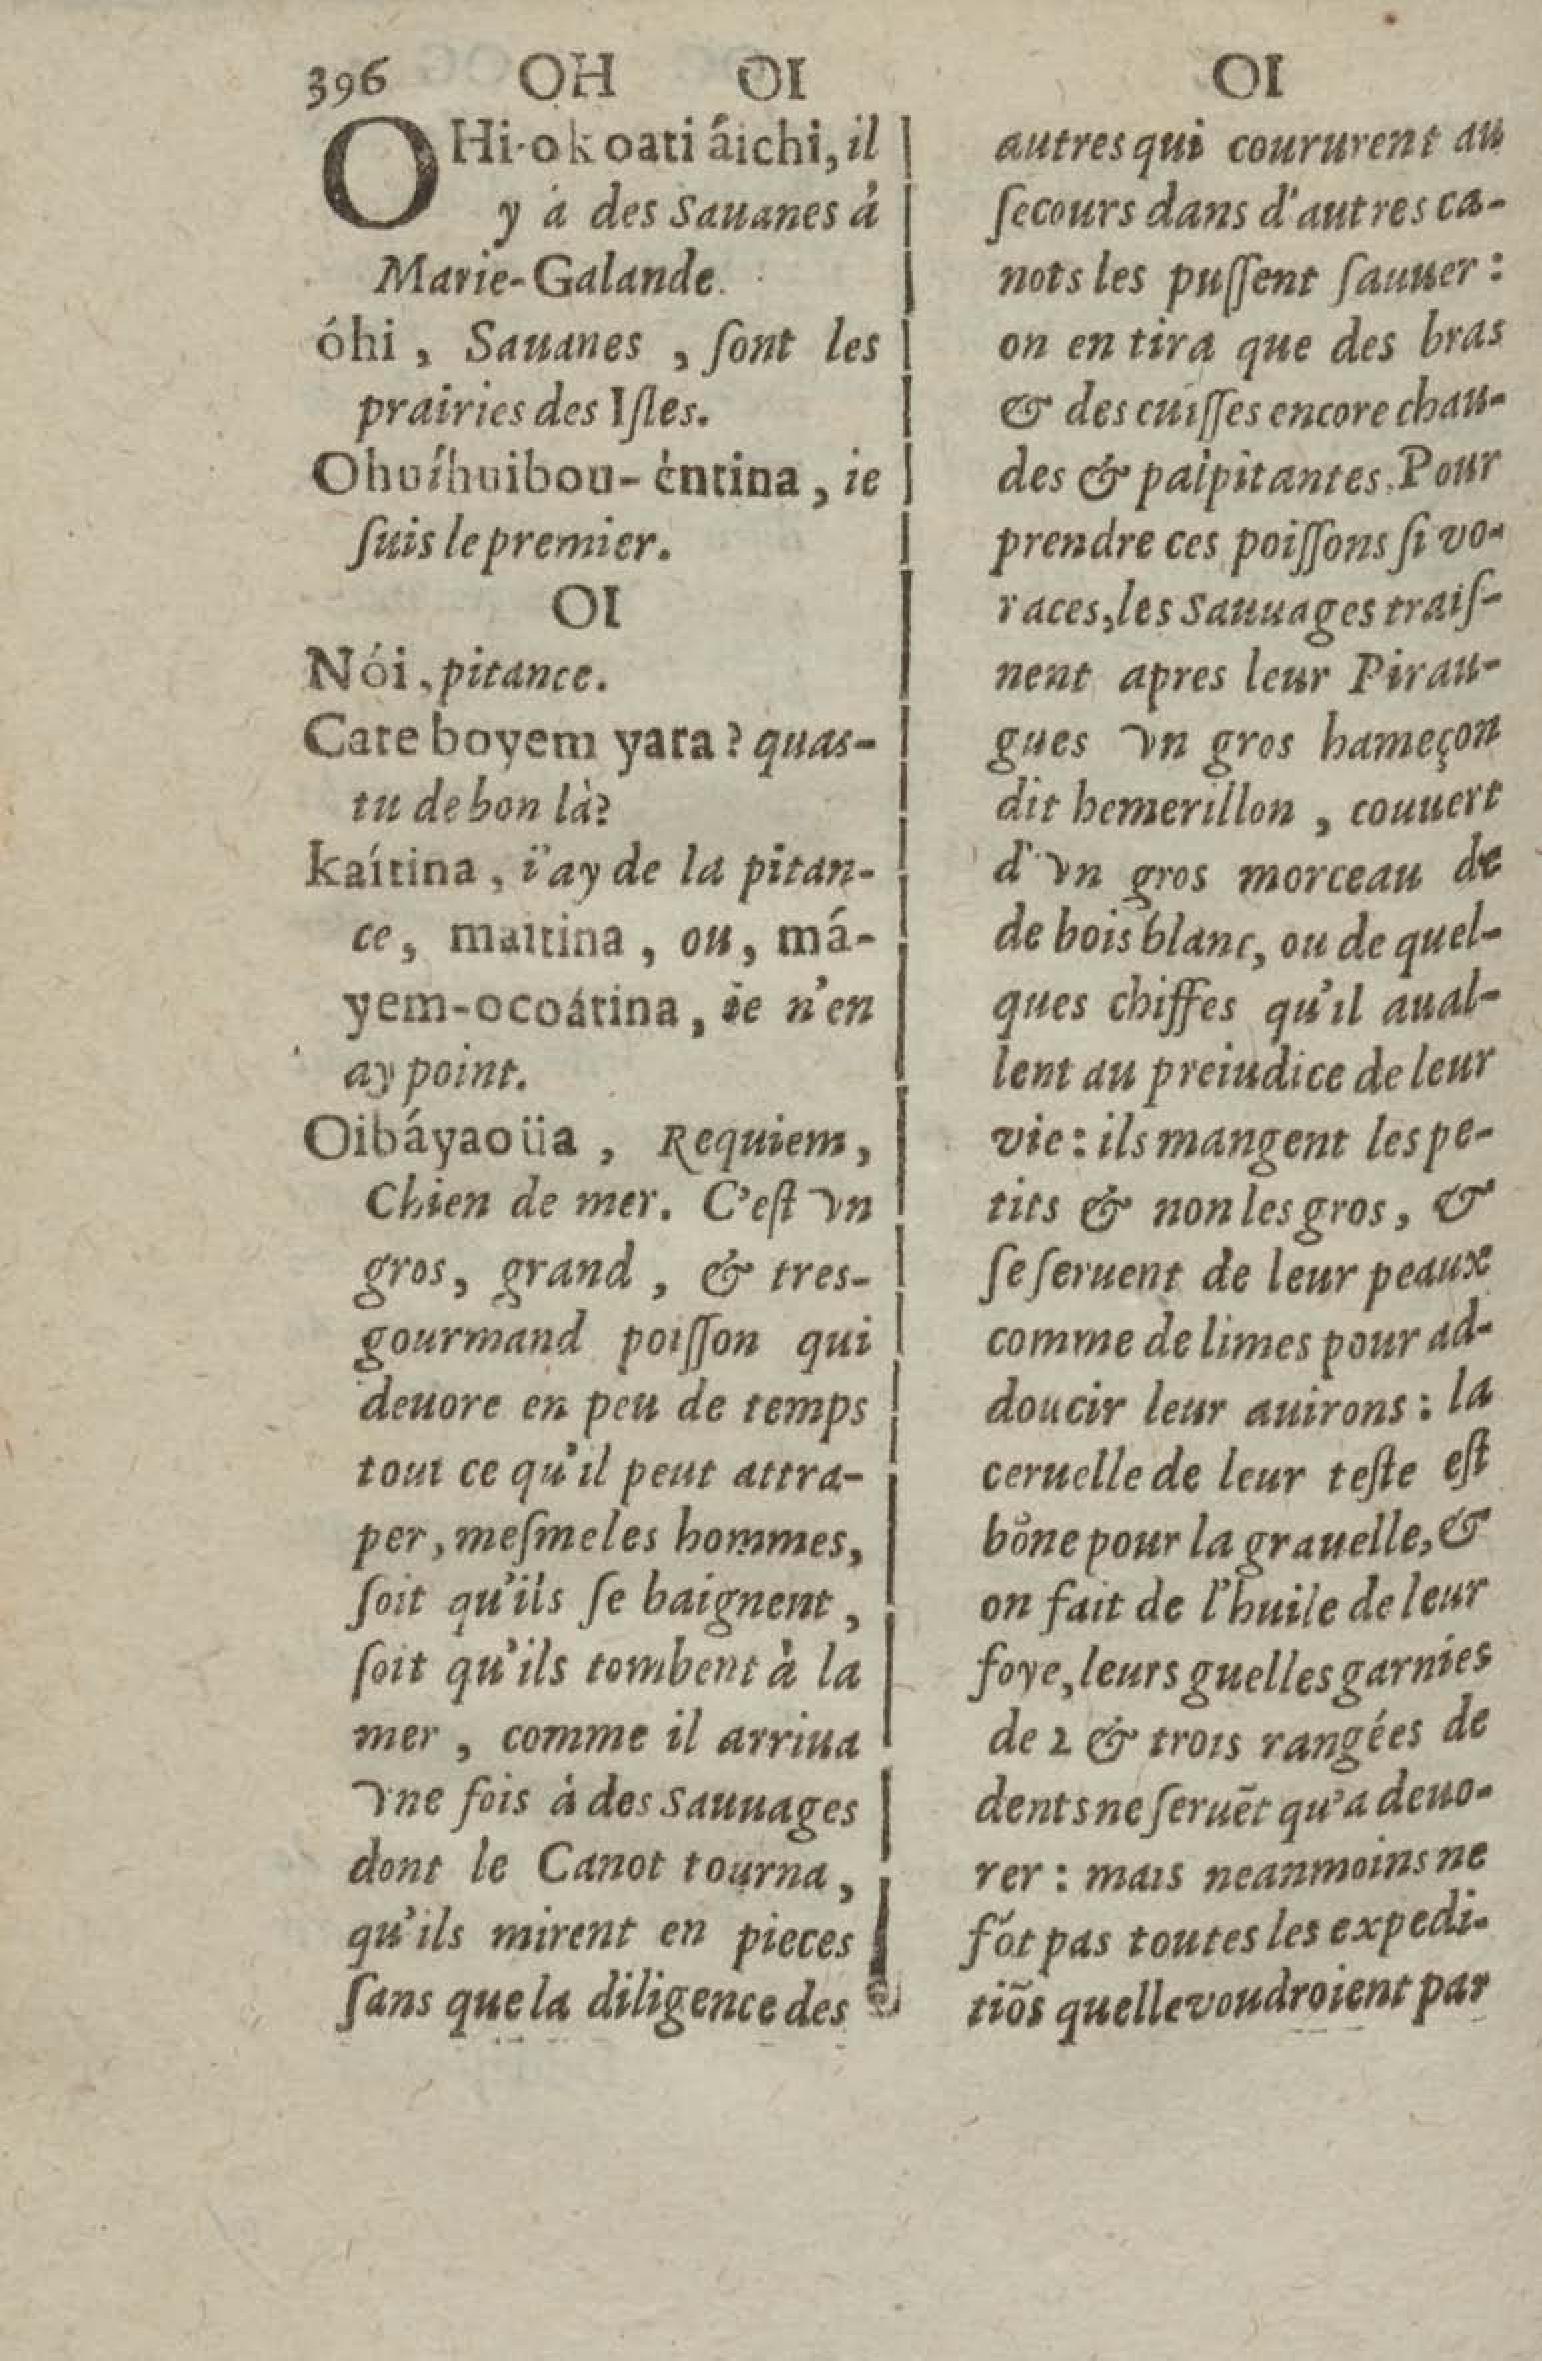 396 OH OI OI
OHi-okoati áichi, il
y à des Sauanes à
Marie-Galande.
óhi, Sauanes, ſont les
prairies des Iſles.
Ohuíhuibou-èntina, ie
ſuis le premier.
OI
Nói, pitance.
Cate boyem yara? quas-
tu de bon là?
kaítina, i'ay de la pitan-
ce, maitina, ou, má-
yem-ocoátina, ie n'en
ay point.
Oibáyaoüa, Requiem,
Chien de mer. C'eſt vn
gros, grand, & tres-
gourmand poiſſon qui
deuore en peu de temps
tout ce qu'il peut attra-
per, meſme les hommes,
ſoit qu'ils ſe baignent,
ſoit qu'ils tombent à la
mer, comme il arriua
vne fois à des Sauuages
dont le Canot tourna,
qu'ils mirent en pieces
ſans que la diligence des
autres qui coururent au
ſecours dans d'autres ca-
nots les puſſent ſauuer:
on en tira que des bras
& des cuiſſes encore chau-
des & palpitantes. Pour
prendre ces poiſſons ſi vo-
races, les Sauuages traiſ-
nent apres leur Pirau-
gues vn gros hameçon
dit hemerillon, couuert
d'vn gros morceau de
de bois blanc, ou de quel-
ques chiffes qu'il aual-
lent au preiudice de leur
vie: ils mangent les pe-
tits & non les gros, &
ſe ſeruent de leur peaux
comme de limes pour ad-
doucir leur auirons: la
ceruelle de leur teſte eſt
bõne pour la grauelle, &
on fait de l'huile de leur
foye, leurs guelles garnies
de 2 & trois rangées de
dents ne ſeruẽt qu'a deuo-
rer: mais neanmoins ne
fõt pas toutes les expedi-
tiõs quelle voudroient par